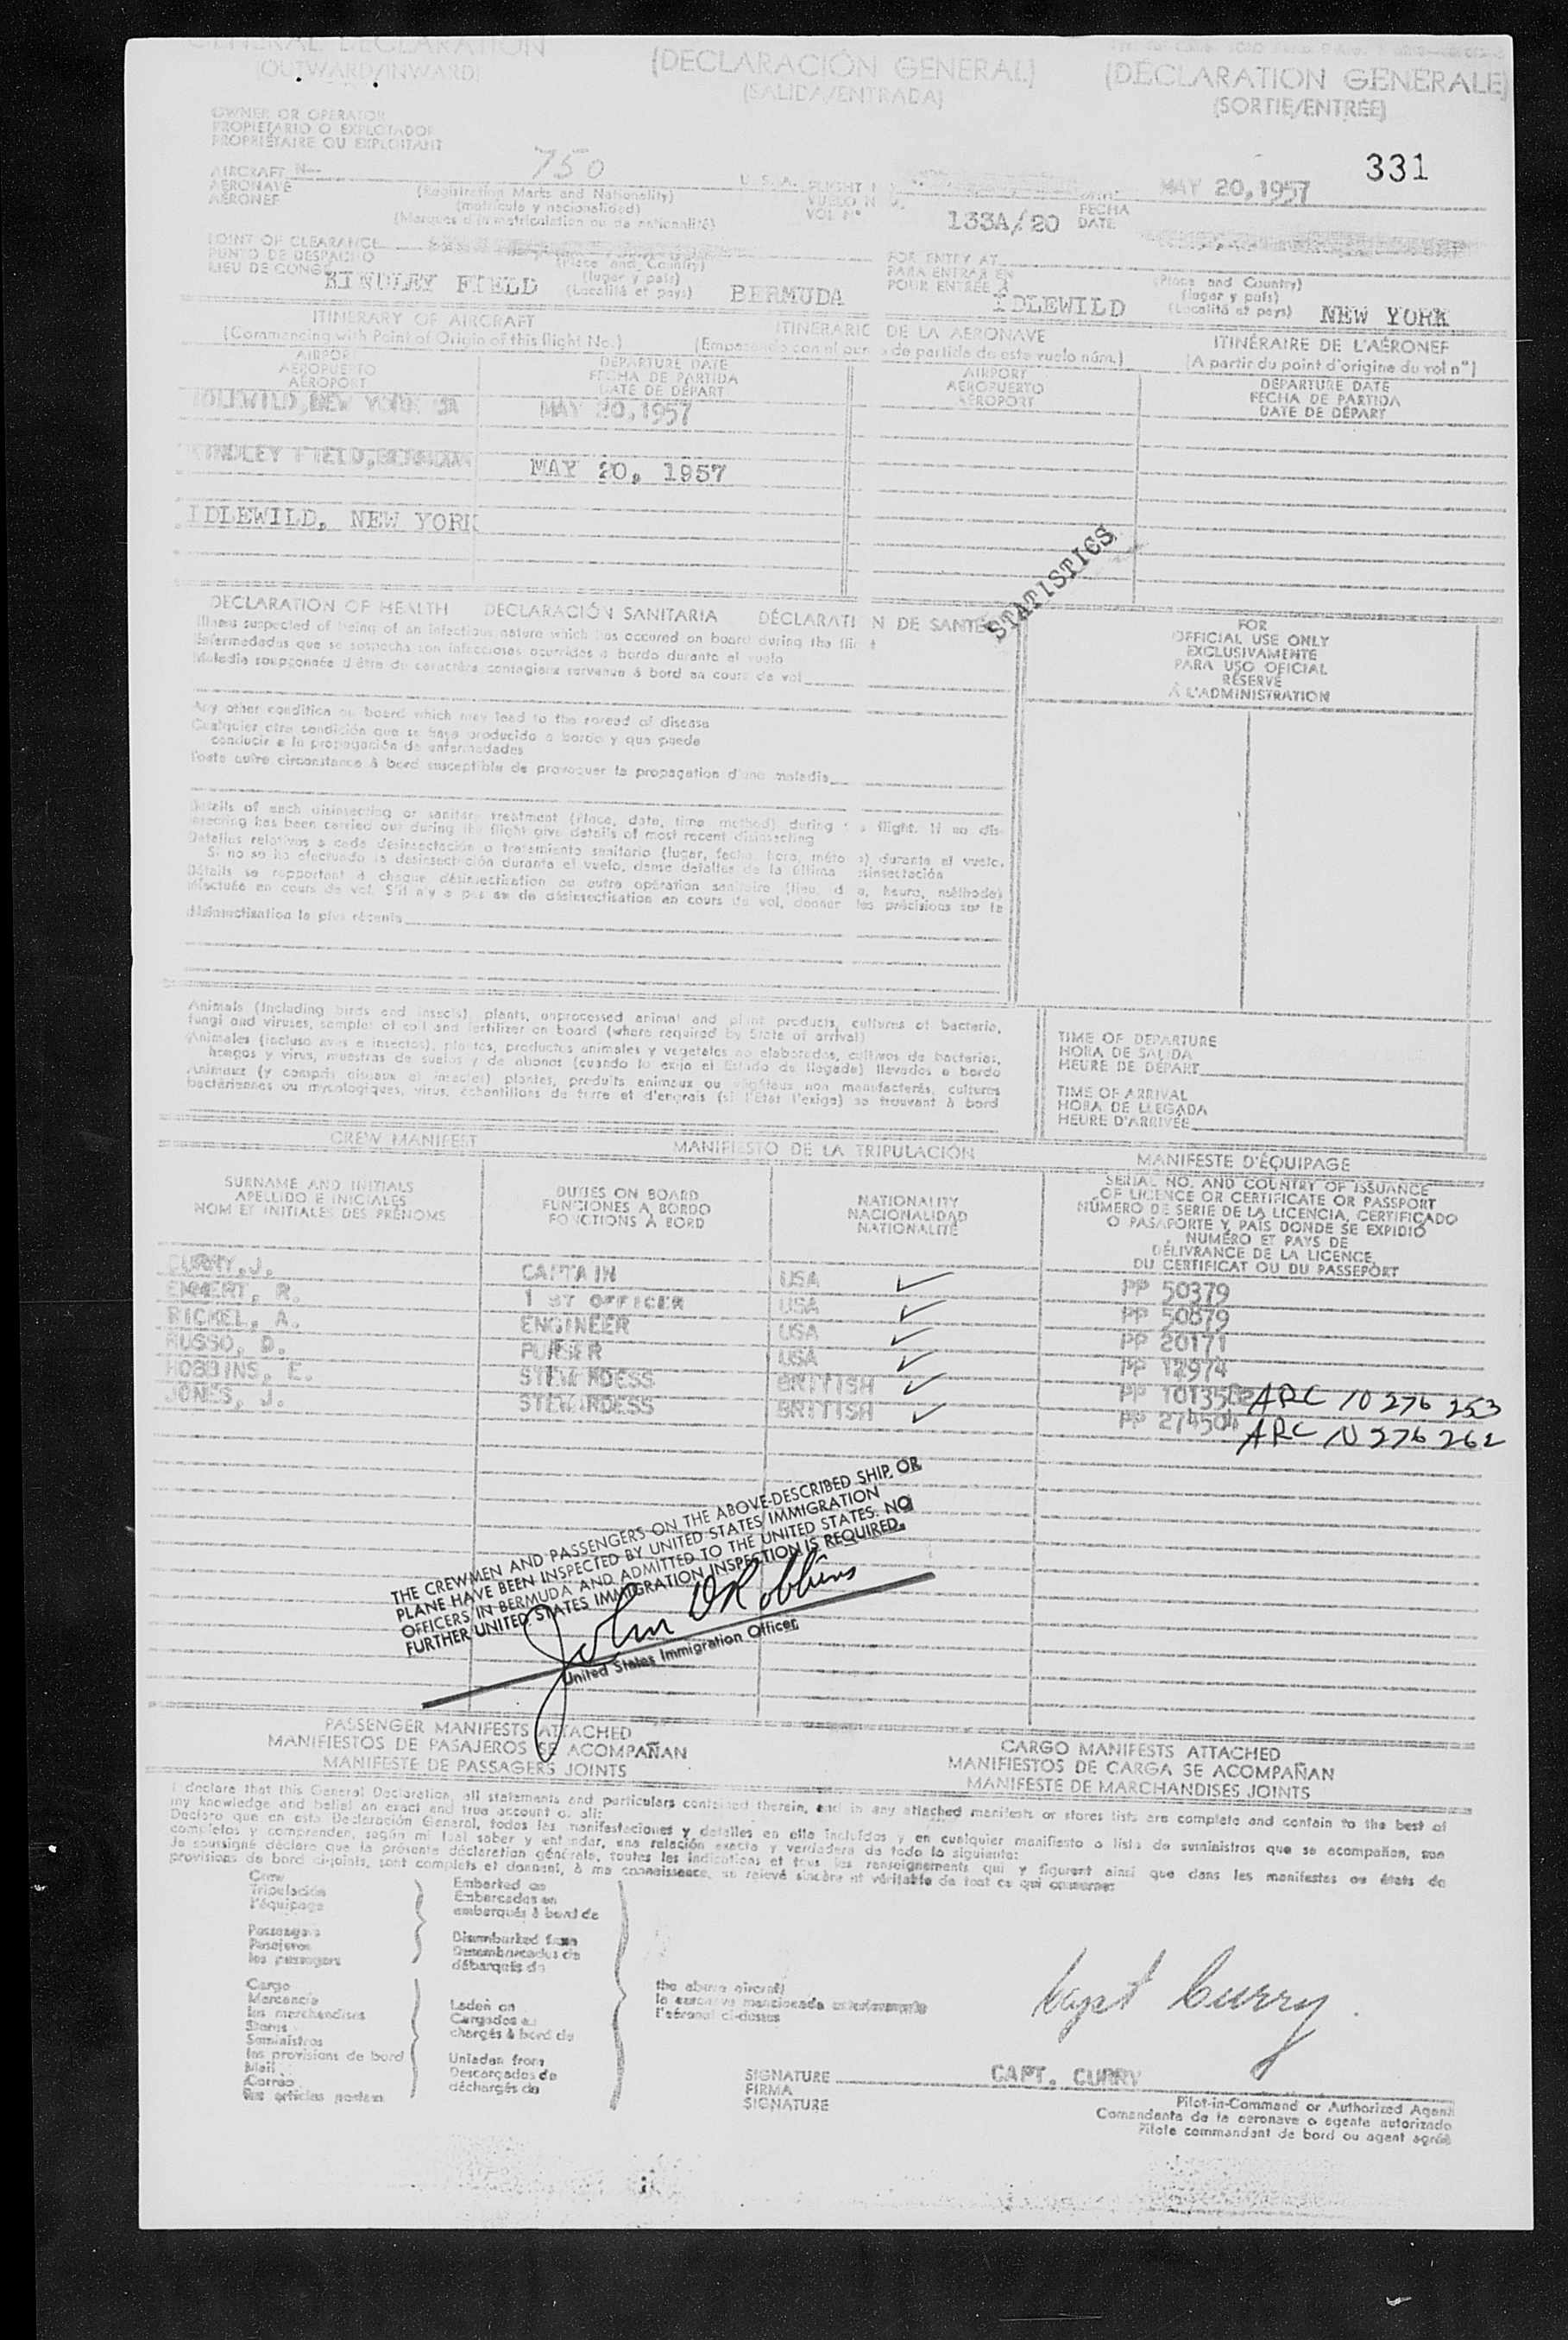 GENERAL DECLARATION
(OUTWARD/INWARD)
(DECLARACIÓN GENERAL)
(SALIDA/ENTRADA)
(DÉCLARATION GÉNÉRALE)
(SORTIE/ENTRÉE)
OWNER OR OPERATOR
PROPIETARIO O EXPLOTADOR
PROPRIÉTAIRE OU EXPLOITANT
331
AIRCRAFT N— 750 U. S. A.
AERONAVE
AÉRONEF
(Registration Marks and Nationality)
(matrícula y nacionalidad)
(Marques d'immatriculation ou de nationalité)
FLIGHT
VUELO N
VOL Nº
133A/20
FECHA
DATE
MAY 20,1957
POINT OF CLEARANCE
PUNTO DE DESPACHO
LIEU DE CONGÉ
KINDLEY FIELD
(Place and Country)
(lugar y país)
(Localité et pays)
BERMUDA
FOR ENTRY AT
PARA ENTRAR EN
POUR ENTRÉE À
IDLEWILD
(Place and Country)
(lugar y país)
(Localité et pays)
NEW YORK
ITINERARY OF AIRCRAFT
ITINERARIO DE LA AERONAVE
ITINÉRAIRE DE L'AÉRONEF
(Commencing with Point of Origin of this flight No.)
(Empezando con el punto de partida de este vuelo núm.)
(A partir du point d'origine du vol nº)
AIRPORT
AEROPUERTO
AÉROPORT
DEPARTURE DATE
FECHA DE PARTIDA
DATE DE DÉPART
AIRPORT
AEROPUERTO
AÉROPORT
DEPARTURE DATE
FECHA DE PARTIDA
DATE DE DÉPART
IDLEWILD, NEW YORK
MAY 20,1957
KINDLEY FIELD, BERMUDA
MAY 20, 1957
IDLEWILD, NEW YORK
STATISTICS
DECLARATION OF HEALTH DECLARACIÓN SANITARIA DÉCLARATI N DE SANTÉ
Illness suspected of being of an infectious nature which has occured on board during the fli t
Enfermedades que se sospecha son infecciosas ocurridas a bordo durante el vuelo
Maladie soupçonnée d'être de caractère contagieux survenue à bord en cours de vol
FOR
OFFICIAL USE ONLY
EXCLUSIVAMENTE
PARA USO OFICIAL
RÉSERVÉ
À L'ADMINISTRATION
Any other condition on board which may lead to the spread of disease
Cualquier otra condición que se haya producido a bordo y que puede
conducir a la propagación de enfermedades
Toute autre circonstance à bord susceptible de provoquer la propagation d'une maladie
Details of each disinsecting or sanitary treatment (Place, date, time method) during flight. If no dis-
insecting has been carried out during the flight give details of most recent disinsecting
Detalles relativos a cada desinsectación o tratamiento sanitario (lugar, fecha, hora, método) durante el vuelo.
Si no se ha efectuado la desinsectación durante el vuelo, dense detalles de la última sinsectación
Détails se rapportant à chaque désinsectisation ou autre opération sanitaire (lieu, d e, heure, méthode)
effectuée en cours de vol. S'il n'y a pas eu de désinsectisation en cours de vol, donner les précisions sur la
désinsectisation la plus récente
Animals (Including birds and insects), plants, unprocessed animal and plant products, cultures of bacteria,
fungi and viruses, samples of soil and fertilizer on board (where required by State of arrival)
Animales (incluso aves e insectos), plantas, productos animales y vegetales no elaborados, cultivos de bacterias,
hongos y virus, muestras de suelos y de abonos (cuando lo exija el Estado de llegada) llevados a bordo
Animaux (y compris oiseaux et insectes) plantes, produits animaux ou végétaux non manufacturés, cultures
bactériennes ou mycologiques, virus, échantillons de terre et d'engrais (si l'État l'exige) se trouvant à bord
TIME OF DEPARTURE
HORA DE SALIDA
HEURE DE DÉPART
TIME OF ARRIVAL
HORA DE LLEGADA
HEURE D'ARRIVÉE
CREW MANIFEST MANIFIESTO DE LA TRIPULACIÓN MANIFESTE D'ÉQUIPAGE
SURNAME AND INITIALS
APELLIDO E INICIALES
NOM ET INITIALES DES PRÉNOMS
DUTIES ON BOARD
FUNCIONES A BORDO
FONCTIONS À BORD
NATIONALITY
NACIONALIDAD
NATIONALITÉ
SERIAL NO. AND COUNTRY OF ISSUANCE
OF LICENCE OR CERTIFICATE OR PASSPORT
NÚMERO DE SERIE DE LA LICENCIA, CERTIFICADO
O PASAPORTE Y PAÍS DONDE SE EXPIDIÓ
NUMÉRO ET PAYS DE
DÉLIVRANCE DE LA LICENCE,
DU CERTIFICAT OU DU PASSEPORT
CURRY, J. CAPTAIN USA ✓ PP 50379
EMMERT, R. 1 ST OFFICER USA ✓ PP 50879
RICKEL, A. ENGINEER USA ✓ PP 20171
RUSSO, D. PURSER USA ✓ PP 12974
HOBBINS, E. STEWARDESS BRITISH ✓ PP ARC 10 276 253
JONES, J. STEWARDESS BRITISH ✓ PP 274504 ARC 10 276 262
THE CREWMEN AND PASSENGERS ON THE ABOVE-DESCRIBED SHIP OR
PLANE HAVE BEEN INSPECTED BY UNITED STATES IMMIGRATION
OFFICERS IN BERMUDA AND ADMITTED TO THE UNITED STATES. NO
FURTHER UNITED STATES IMMIGRATION INSPECTION IS REQUIRED.
John D Robbins
United States Immigration Officer
PASSENGER MANIFESTS ATTACHED
MANIFIESTOS DE PASAJEROS SE ACOMPAÑAN
MANIFESTE DE PASSAGERS JOINTS
CARGO MANIFESTS ATTACHED
MANIFIESTOS DE CARGA SE ACOMPAÑAN
MANIFESTE DE MARCHANDISES JOINTS
I declare that this General Declaration, all statements and particulars contained therein, and in any attached manifests or stores lists are complete and contain to the best of
my knowledge and belief an exact and true account of all:
Declaro que en esta Declaración General, todas las manifestaciones y detalles en ella incluídos y en cualquier manifiesto o lista de suministros que se acompañan, son
completos y comprenden, según mi leal saber y entender, una relación exacta y verdadera de todo lo siguiente:
Je soussigné déclare que la présente déclaration générale, toutes les indications et tous les renseignements qui y figurent ainsi que dans les manifestes ou états de
provisions de bord ci-joints, sont complets et donnent, à ma connaissance, un relevé sincère et véritable de tout ce qui concerne:
Crew
Tripulación
l'équipage
Passengers
Pasajeros
les passagers
Embarked on
Embarcados en
embarqués à bord de
Disembarked from
Desembarcados de
débarqués de
Cargo
Mercancía
les marchandises
Stores
Suministros
les provisions de bord
Mail
Correo
les articles postaux
Laden on
Cargados en
chargés à bord de
Unladen from
Descargados de
déchargés de
the above aircraft
la aeronave mencionada anteriormente
l'aéronef ci-dessus
Capt Curry
SIGNATURE CAPT. CURRY
FIRMA
SIGNATURE
Pilot-in-Command or Authorized Agent
Comandante de la aeronave o agente autorizado
Pilote commandant de bord ou agent agréé